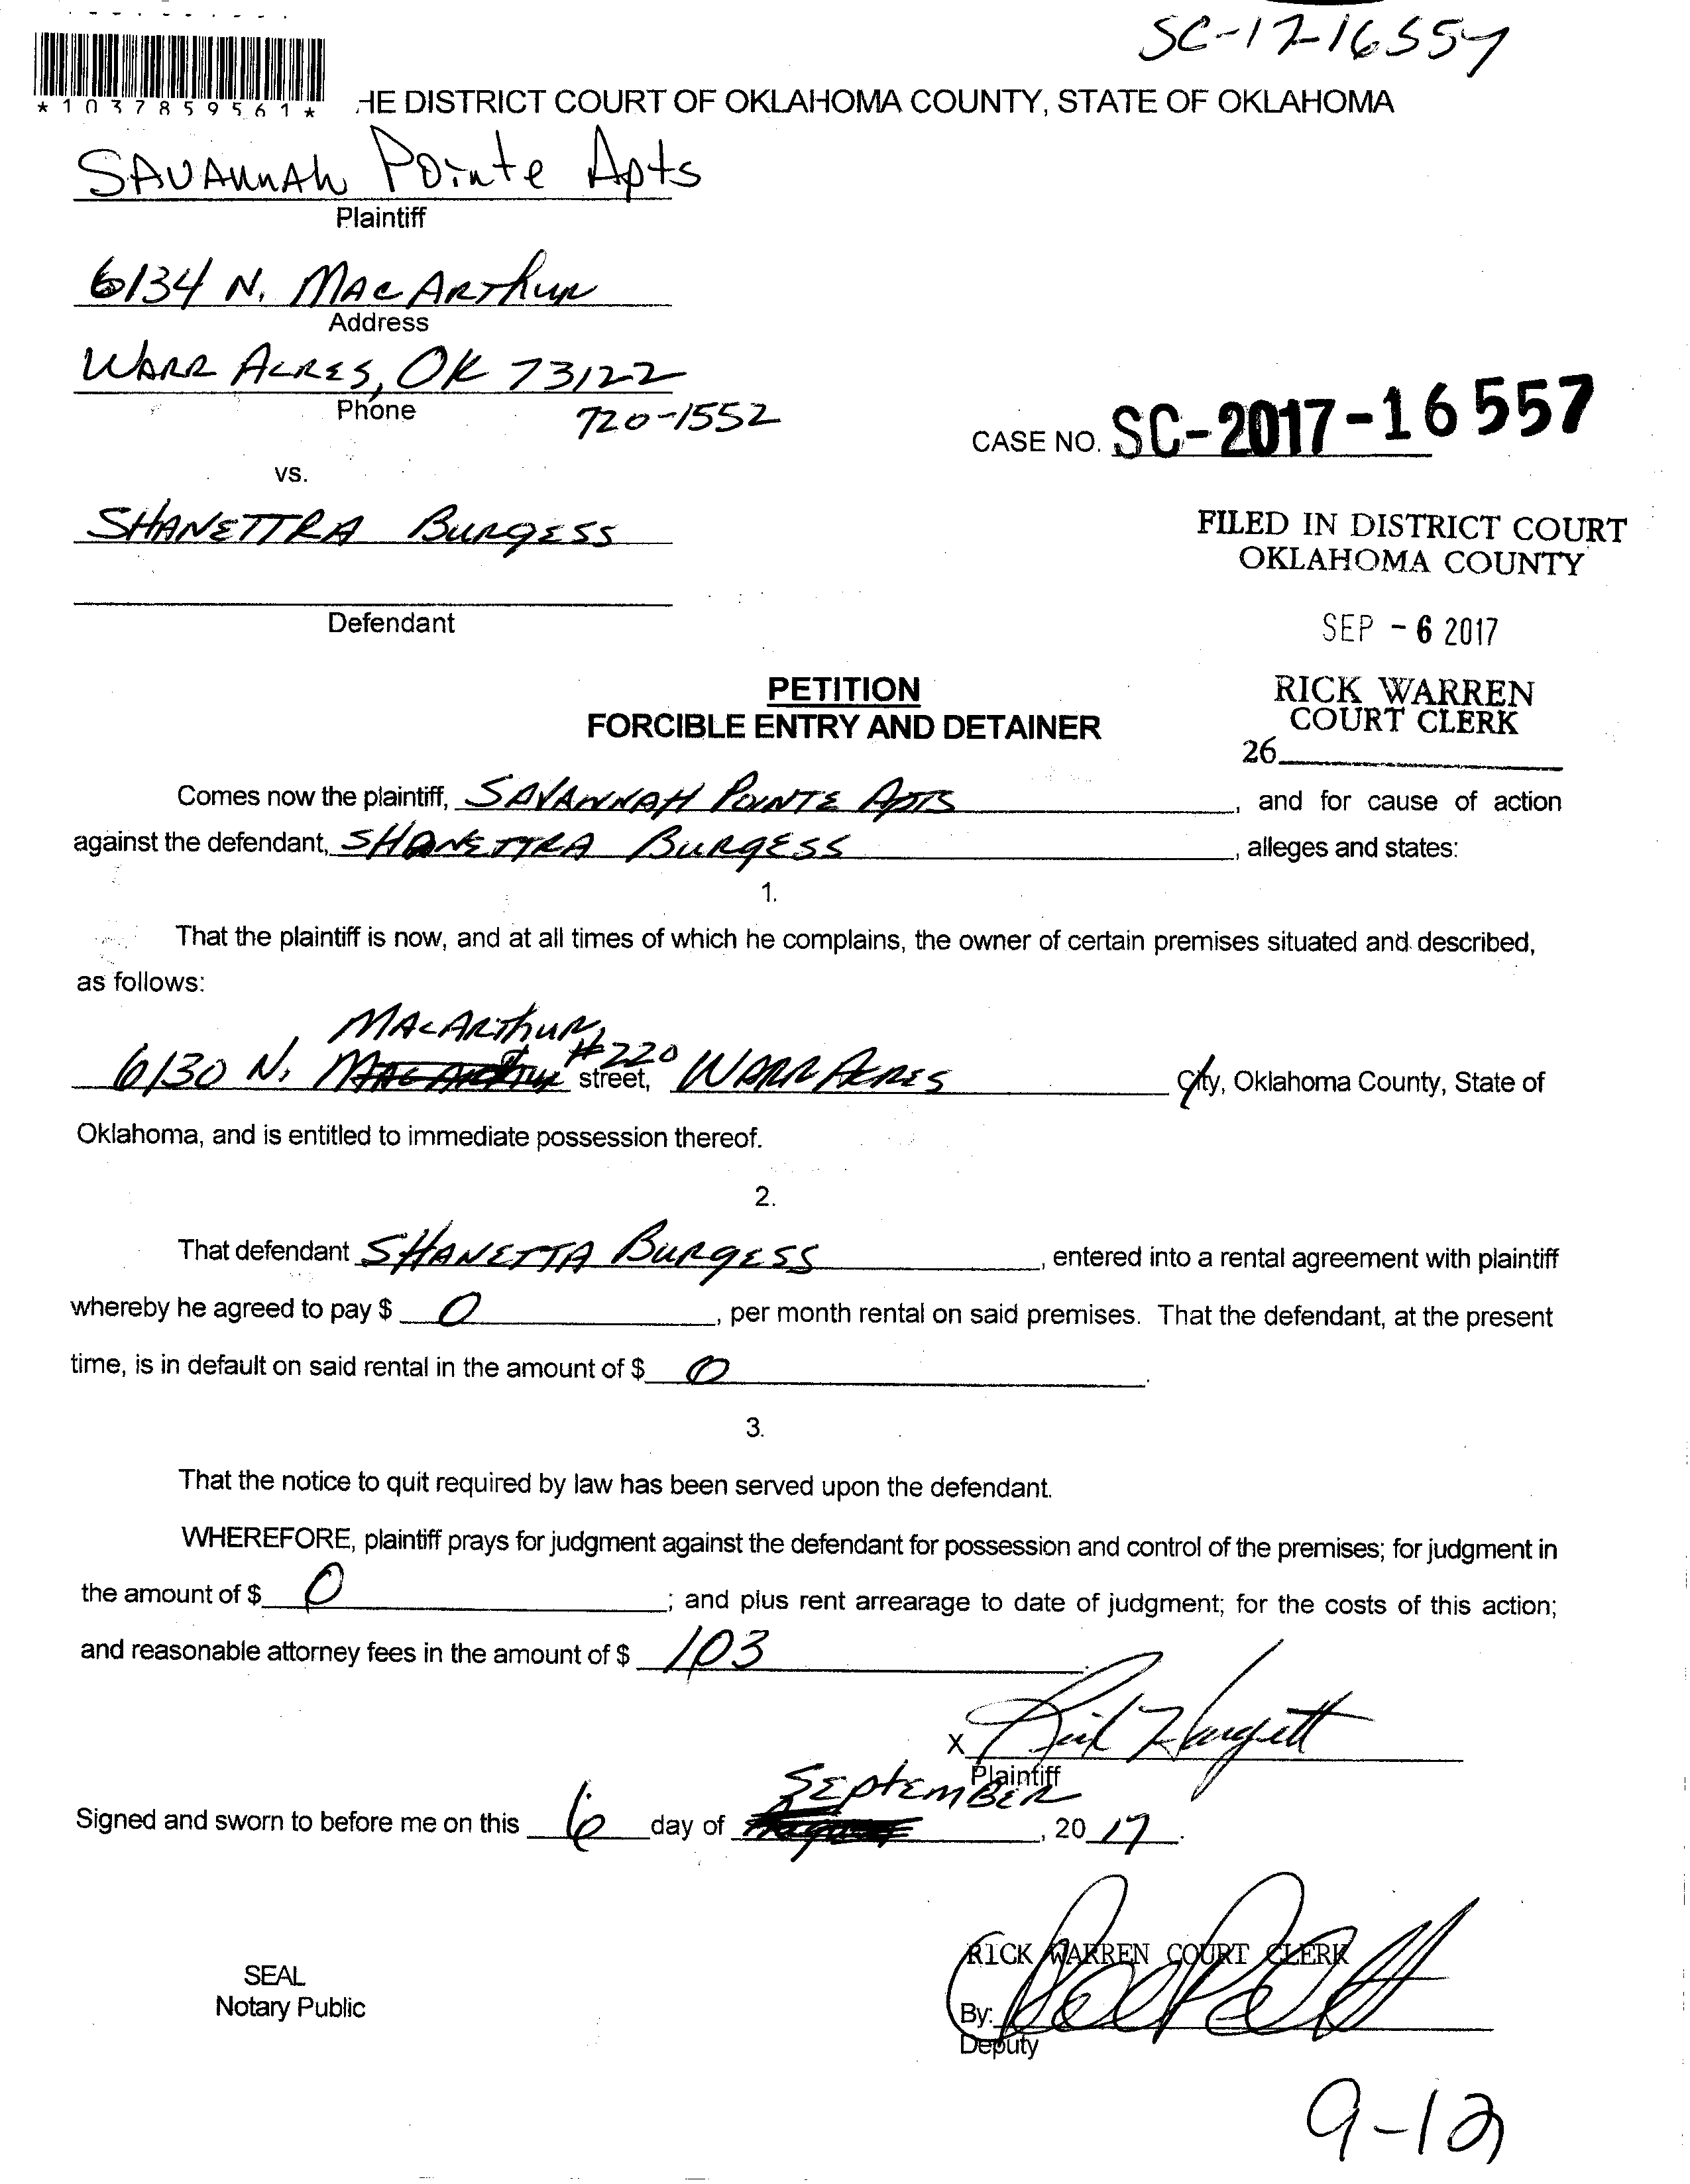 SC-17-16557
*1037859561*
HE DISTRICT COURT OF OKLAHOMA COUNTY, STATE OF OKLAHOMA
SAVANNAH Pointe Apts
Plaintiff
6134 N. MACARThUR
Address
WARR ACRES, OK 73122
Phone
720-1552
CASE NO. SC-2017-16557
vs.
SHANETTRA BURGESS
FILED IN DISTRICT COURT
OKLAHOMA COUNTY
Defendant
SEP - 6 2017
PETITION
FORCIBLE ENTRY AND DETAINER
RICK WARREN
COURT CLERK
26
Comes now the plaintiff, SAVANNAH POINTE APTS, and for cause of action
against the defendant, SHANETTRA BURGESS, alleges and states:
1.
That the plaintiff is now, and at all times of which he complains, the owner of certain premises situated and described,
as follows:
MACARThUR,
6130 N. MACARTHUR #220 street, WARR ACRES City, Oklahoma County, State of
Oklahoma, and is entitled to immediate possession thereof.
2.
That defendant SHANETTA BURGESS, entered into a rental agreement with plaintiff
whereby he agreed to pay $ 0, per month rental on said premises. That the defendant, at the present
time, is in default on said rental in the amount of $ 0.
3.
That the notice to quit required by law has been served upon the defendant.
WHEREFORE, plaintiff prays for judgment against the defendant for possession and control of the premises; for judgment in
the amount of $ 0; and plus rent arrearage to date of judgment; for the costs of this action;
and reasonable attorney fees in the amount of $ 103.
X Rick Hargett
Plaintiff
SEPTEMBER
Signed and sworn to before me on this 6 day of August, 20 17.
SEAL
Notary Public
RICK WARREN COURT CLERK
By:
Deputy
9-12